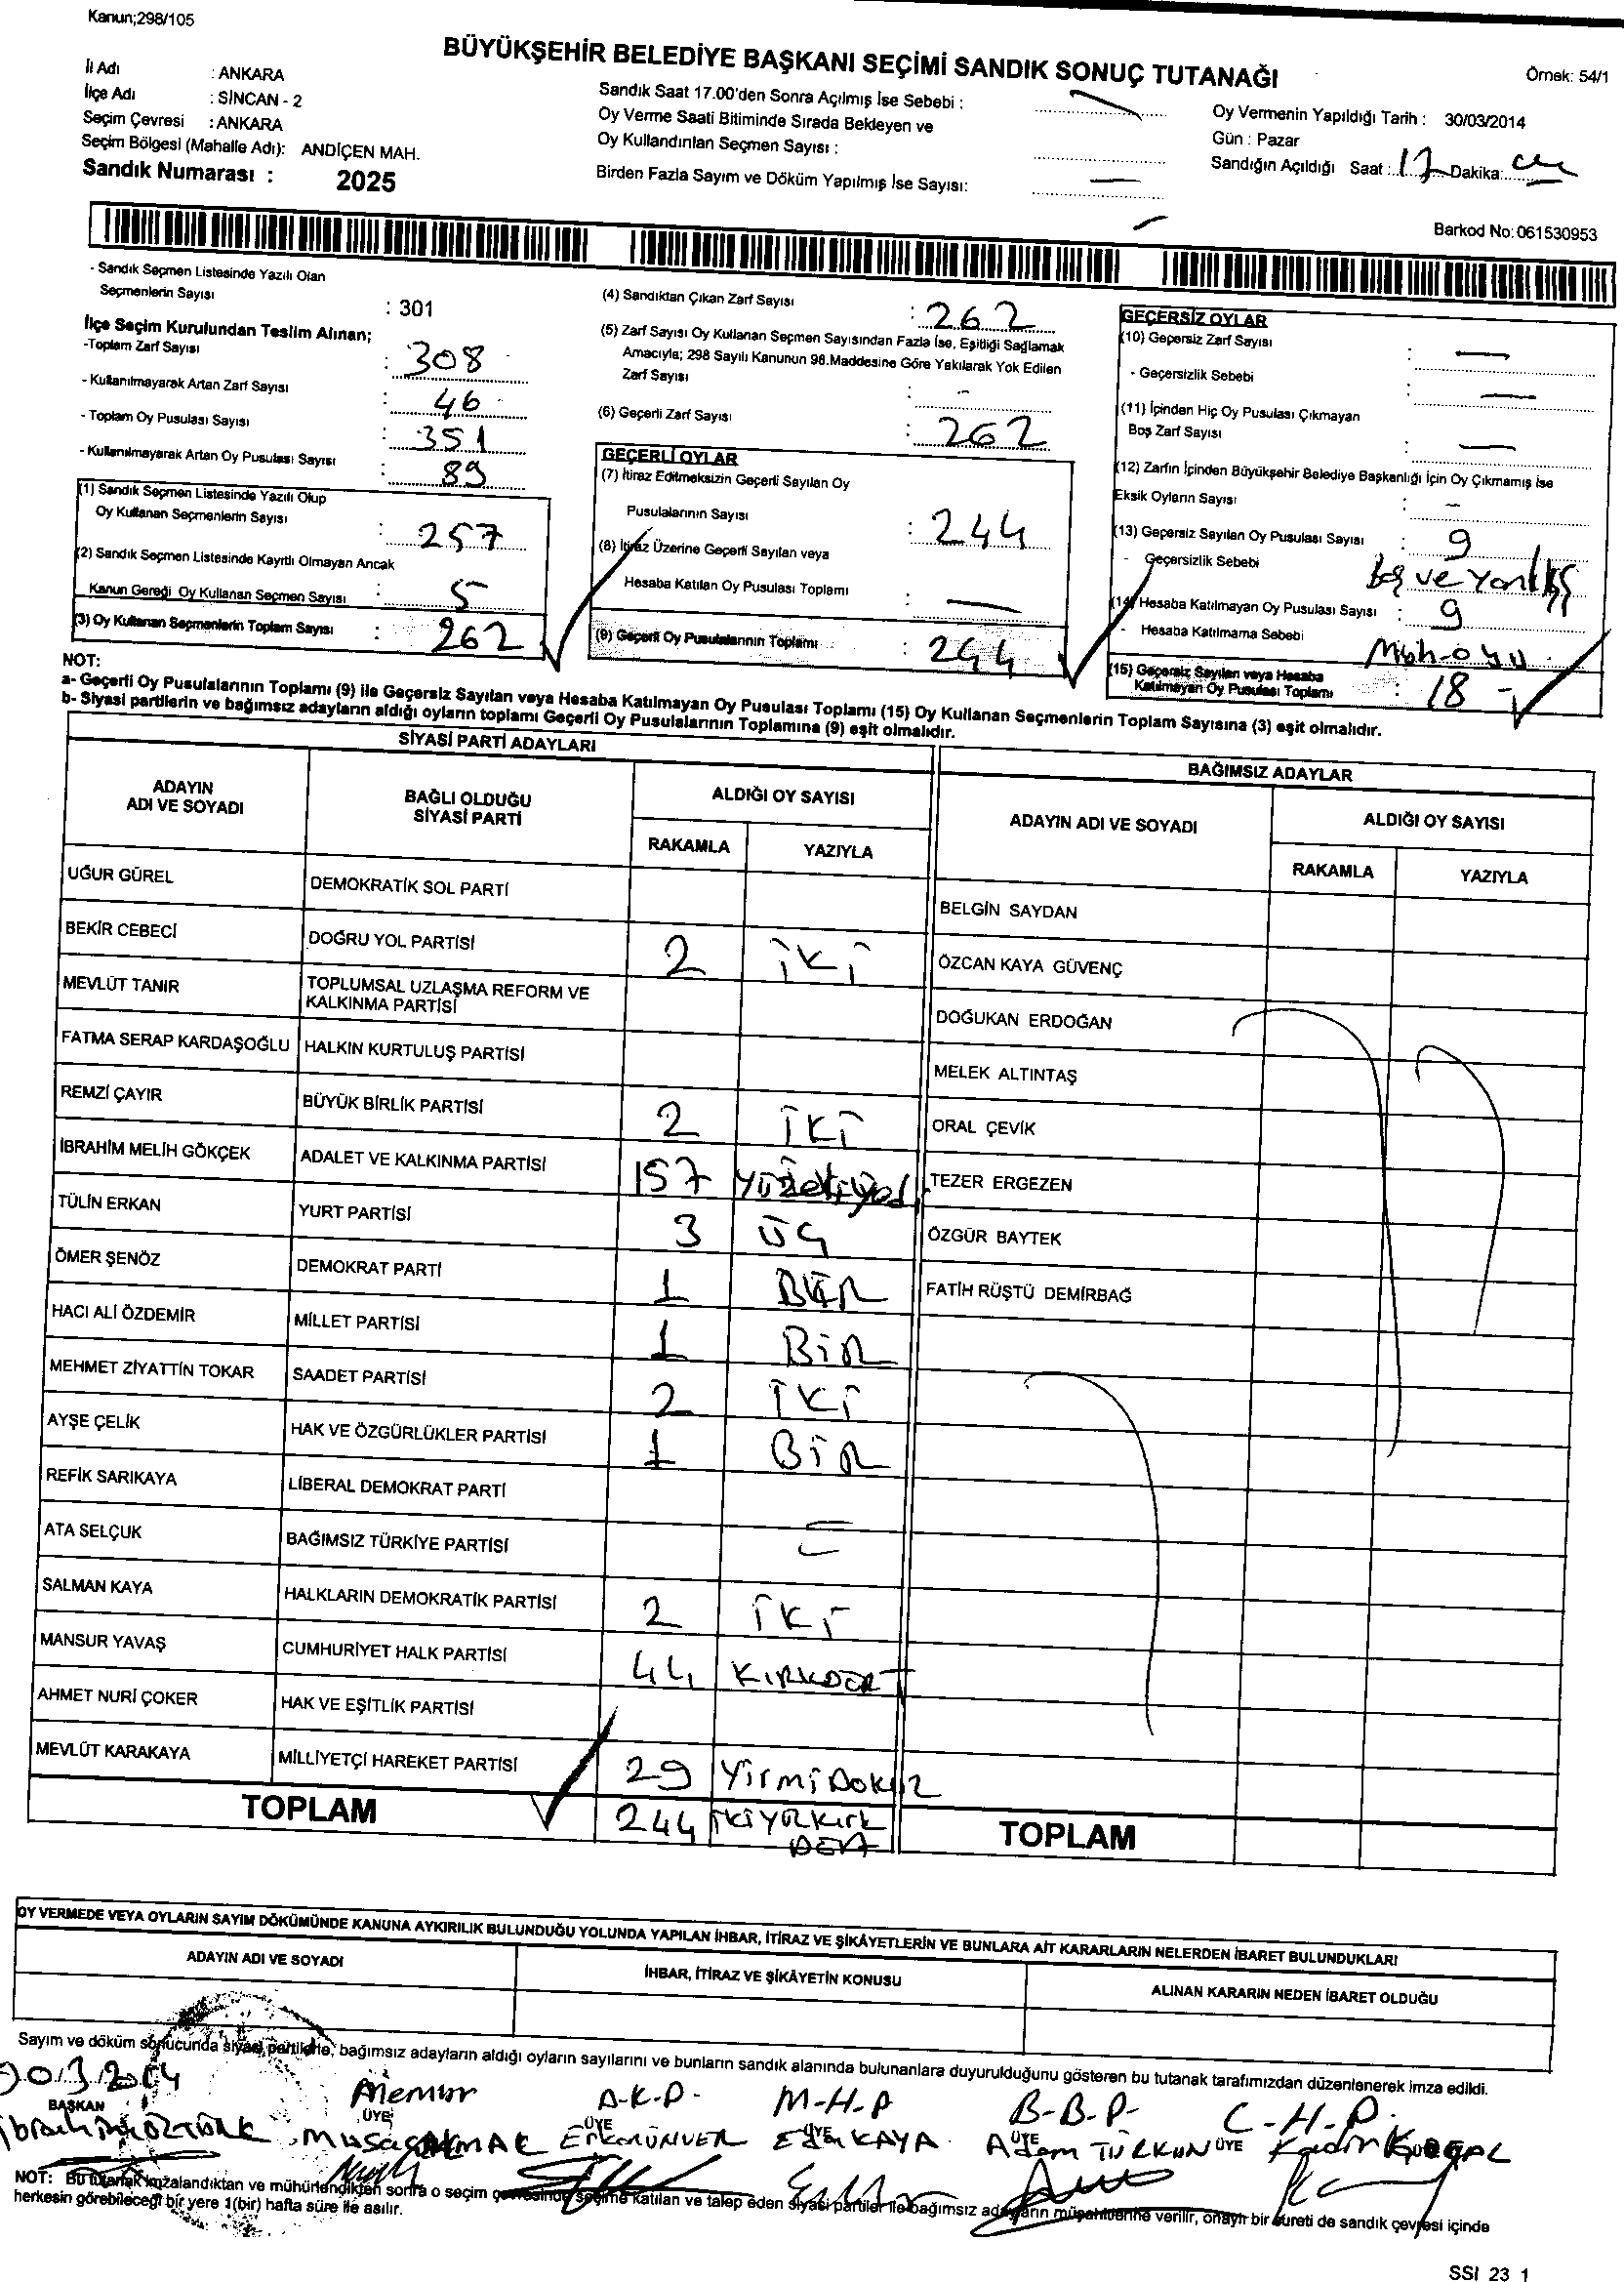 Kanun;298/105
BÜYÜKŞEHİR BELEDİYE BAŞKANI SEÇİMİ SANDIK SONUÇ TUTANAĞI
Örnek: 54/1
İl Adı : ANKARA
İlçe Adı : SİNCAN - 2
Seçim Çevresi : ANKARA
Seçim Bölgesi (Mahalle Adı): ANDİÇEN MAH.
Sandık Numarası : 2025
Sandık Saat 17.00'den Sonra Açılmış İse Sebebi :
Oy Verme Saati Bitiminde Sırada Bekleyen ve
Oy Kullandırılan Seçmen Sayısı :
Birden Fazla Sayım ve Döküm Yapılmış İse Sayısı: —
Oy Vermenin Yapıldığı Tarih : 30/03/2014
Gün : Pazar
Sandığın Açıldığı Saat : 17 Dakika:
Barkod No: 061530953
- Sandık Seçmen Listesinde Yazılı Olan
Seçmenlerin Sayısı : 301
İlçe Seçim Kurulundan Teslim Alınan;
-Toplam Zarf Sayısı : 308
- Kullanılmayarak Artan Zarf Sayısı : 46
- Toplam Oy Pusulası Sayısı : 351
- Kullanılmayarak Artan Oy Pusulası Sayısı : 89
(1) Sandık Seçmen Listesinde Yazılı Olup
Oy Kullanan Seçmenlerin Sayısı : 257
(2) Sandık Seçmen Listesinde Kayıtlı Olmayan Ancak
Kanun Gereği Oy Kullanan Seçmen Sayısı : 5
(3) Oy Kullanan Seçmenlerin Toplam Sayısı : 262
(4) Sandıktan Çıkan Zarf Sayısı : 262
(5) Zarf Sayısı Oy Kullanan Seçmen Sayısından Fazla İse, Eşitliği Sağlamak
Amacıyla; 298 Sayılı Kanunun 98.Maddesine Göre Yakılarak Yok Edilen
Zarf Sayısı : -
(6) Geçerli Zarf Sayısı : 262
GEÇERLİ OYLAR
(7) İtiraz Edilmeksizin Geçerli Sayılan Oy
Pusulalarının Sayısı : 244
(8) İtiraz Üzerine Geçerli Sayılan veya
Hesaba Katılan Oy Pusulası Toplamı : —
(9) Geçerli Oy Pusulalarının Toplamı : 244
GEÇERSİZ OYLAR
(10) Geçersiz Zarf Sayısı : —
- Geçersizlik Sebebi : —
(11) İçinden Hiç Oy Pusulası Çıkmayan
Boş Zarf Sayısı : —
(12) Zarfın İçinden Büyükşehir Belediye Başkanlığı İçin Oy Çıkmamış İse
Eksik Oyların Sayısı : -
(13) Geçersiz Sayılan Oy Pusulası Sayısı : 9
- Geçersizlik Sebebi Boş ve Yanlış
(14) Hesaba Katılmayan Oy Pusulası Sayısı : 9
- Hesaba Katılmama Sebebi
(15) Geçersiz Sayılan veya Hesaba
Katılmayan Oy Pusulası Toplamı : 18
NOT:
a- Geçerli Oy Pusulalarının Toplamı (9) ile Geçersiz Sayılan veya Hesaba Katılmayan Oy Pusulası Toplamı (15) Oy Kullanan Seçmenlerin Toplam Sayısına (3) eşit olmalıdır.
b- Siyasi partilerin ve bağımsız adayların aldığı oyların toplamı Geçerli Oy Pusulalarının Toplamına (9) eşit olmalıdır.
SİYASİ PARTİ ADAYLARI
ADAYIN ADI VE SOYADI BAĞLI OLDUĞU SİYASİ PARTİ ALDIĞI OY SAYISI
RAKAMLA YAZIYLA
UĞUR GÜREL DEMOKRATİK SOL PARTİ
BEKİR CEBECİ DOĞRU YOL PARTİSİ 2 İKİ
MEVLÜT TANIR TOPLUMSAL UZLAŞMA REFORM VE KALKINMA PARTİSİ
FATMA SERAP KARDAŞOĞLU HALKIN KURTULUŞ PARTİSİ
REMZİ ÇAYIR BÜYÜK BİRLİK PARTİSİ 2 İKİ
İBRAHİM MELİH GÖKÇEK ADALET VE KALKINMA PARTİSİ 157
TÜLİN ERKAN YURT PARTİSİ 3 ÜÇ
ÖMER ŞENÖZ DEMOKRAT PARTİ 1 BİR
HACI ALİ ÖZDEMİR MİLLET PARTİSİ 1 BİR
MEHMET ZİYATTİN TOKAR SAADET PARTİSİ 2 İKİ
AYŞE ÇELİK HAK VE ÖZGÜRLÜKLER PARTİSİ 1 BİR
REFİK SARIKAYA LİBERAL DEMOKRAT PARTİ
ATA SELÇUK BAĞIMSIZ TÜRKİYE PARTİSİ
SALMAN KAYA HALKLARIN DEMOKRATİK PARTİSİ 2 İKİ
MANSUR YAVAŞ CUMHURİYET HALK PARTİSİ 44 KIRKDÖRT
AHMET NURİ ÇOKER HAK VE EŞİTLİK PARTİSİ
MEVLÜT KARAKAYA MİLLİYETÇİ HAREKET PARTİSİ 29 YirmiDokuz
TOPLAM 244
BAĞIMSIZ ADAYLAR
ADAYIN ADI VE SOYADI ALDIĞI OY SAYISI
RAKAMLA YAZIYLA
BELGİN SAYDAN
ÖZCAN KAYA GÜVENÇ
DOĞUKAN ERDOĞAN
MELEK ALTINTAŞ
ORAL ÇEVİK
TEZER ERGEZEN
ÖZGÜR BAYTEK
FATİH RÜŞTÜ DEMİRBAĞ
TOPLAM
OY VERMEDE VEYA OYLARIN SAYIM DÖKÜMÜNDE KANUNA AYKIRILIK BULUNDUĞU YOLUNDA YAPILAN İHBAR, İTİRAZ VE ŞİKÂYETLERİN VE BUNLARA AİT KARARLARIN NELERDEN İBARET BULUNDUKLARI
ADAYIN ADI VE SOYADI İHBAR, İTİRAZ VE ŞİKÂYETİN KONUSU ALINAN KARARIN NEDEN İBARET OLDUĞU
Sayım ve döküm sonucunda siyasi partilerle, bağımsız adayların aldığı oyların sayılarını ve bunların sandık alanında bulunanlara duyurulduğunu gösteren bu tutanak tarafımızdan düzenlenerek imza edildi.
Memur A-K-P- M-H-P B-B-P- C-H-P.
BAŞKAN ÜYE ÜYE ÜYE ÜYE ÜYE
İbrahim ÖZTÜRK Musa Erkan ÜNVER KAYA Adem TÜRKAN Kadir
NOT: Bu tutanak imzalandıktan ve mühürlendikten sonra o seçim çevresinde seçime katılan ve talep eden siyasi partiler ile bağımsız adayların müşahitlerine verilir, onaylı bir sureti de sandık çevresi içinde
herkesin görebileceği bir yere 1(bir) hafta süre ile asılır.
SSI 23 1